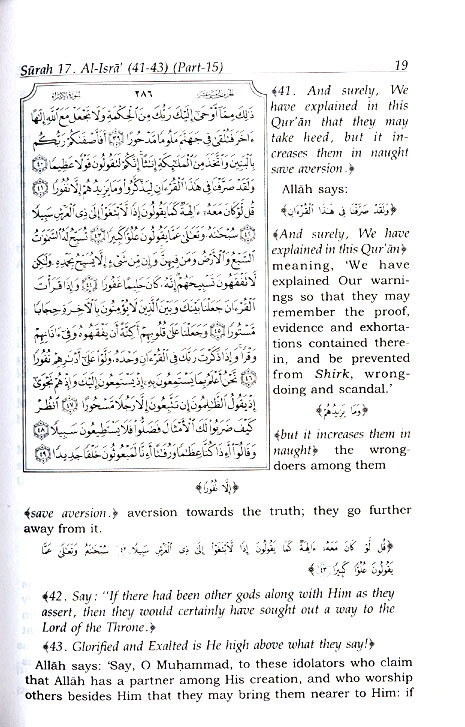 Sūrah 17. Al-Isrā' (41-43) (Part-15)
19
٢٨٦
ذَٰلِكَ مِمَّا أَوْحَىٰ إِلَيْكَ رَبُّكَ مِنَ ٱلْحِكْمَةِ وَلَا تَجْعَلْ مَعَ ٱللَّهِ إِلَٰهًا
ءَاخَرَ فَتُلْقَىٰ فِى جَهَنَّمَ مَلُومًا مَّدْحُورًا ٣٩ أَفَأَصْفَىٰكُمْ رَبُّكُم
بِٱلْبَنِينَ وَٱتَّخَذَ مِنَ ٱلْمَلَٰٓئِكَةِ إِنَٰثًا إِنَّكُمْ لَتَقُولُونَ قَوْلًا عَظِيمًا ٤٠
وَلَقَدْ صَرَّفْنَا فِى هَٰذَا ٱلْقُرْءَانِ لِيَذَّكَّرُوا۟ وَمَا يَزِيدُهُمْ إِلَّا نُفُورًا ٤١
قُل لَّوْ كَانَ مَعَهُۥٓ ءَالِهَةٌ كَمَا يَقُولُونَ إِذًا لَّٱبْتَغَوْا۟ إِلَىٰ ذِى ٱلْعَرْشِ سَبِيلًا
٤٢ سُبْحَٰنَهُۥ وَتَعَٰلَىٰ عَمَّا يَقُولُونَ عُلُوًّا كَبِيرًا ٤٣ تُسَبِّحُ لَهُ ٱلسَّمَٰوَٰتُ
ٱلسَّبْعُ وَٱلْأَرْضُ وَمَن فِيهِنَّ وَإِن مِّن شَىْءٍ إِلَّا يُسَبِّحُ بِحَمْدِهِۦ وَلَٰكِن
لَّا تَفْقَهُونَ تَسْبِيحَهُمْ إِنَّهُۥ كَانَ حَلِيمًا غَفُورًا ٤٤ وَإِذَا قَرَأْتَ
ٱلْقُرْءَانَ جَعَلْنَا بَيْنَكَ وَبَيْنَ ٱلَّذِينَ لَا يُؤْمِنُونَ بِٱلْءَاخِرَةِ حِجَابًا
مَّسْتُورًا ٤٥ وَجَعَلْنَا عَلَىٰ قُلُوبِهِمْ أَكِنَّةً أَن يَفْقَهُوهُ وَفِىٓ ءَاذَانِهِمْ
وَقْرًا وَإِذَا ذَكَرْتَ رَبَّكَ فِى ٱلْقُرْءَانِ وَحْدَهُۥ وَلَّوْا۟ عَلَىٰٓ أَدْبَٰرِهِمْ نُفُورًا
٤٦ نَّحْنُ أَعْلَمُ بِمَا يَسْتَمِعُونَ بِهِۦٓ إِذْ يَسْتَمِعُونَ إِلَيْكَ وَإِذْ هُمْ نَجْوَىٰٓ
إِذْ يَقُولُ ٱلظَّٰلِمُونَ إِن تَتَّبِعُونَ إِلَّا رَجُلًا مَّسْحُورًا ٤٧ ٱنظُرْ
كَيْفَ ضَرَبُوا۟ لَكَ ٱلْأَمْثَالَ فَضَلُّوا۟ فَلَا يَسْتَطِيعُونَ سَبِيلًا ٤٨
وَقَالُوٓا۟ أَءِذَا كُنَّا عِظَٰمًا وَرُفَٰتًا أَءِنَّا لَمَبْعُوثُونَ خَلْقًا جَدِيدًا ٤٩
﴾41. And surely, We
have explained in this
Qur'ān that they may
take heed, but it in-
creases them in naught
save aversion.﴿
Allāh says:
﴿وَلَقَدْ صَرَّفْنَا فِى هَٰذَا ٱلْقُرْءَانِ﴾
﴾And surely, We have
explained in this Qur'ān﴿
meaning, 'We have
explained Our warni-
ngs so that they may
remember the proof,
evidence and exhorta-
tions contained there-
in, and be prevented
from Shirk, wrong-
doing and scandal.'
﴿وَمَا يَزِيدُهُمْ﴾
﴾but it increases them in
naught﴿ the wrong-
doers among them
﴿إِلَّا نُفُورًا﴾
﴾save aversion.﴿ aversion towards the truth; they go further
away from it.
﴿قُل لَّوْ كَانَ مَعَهُۥٓ ءَالِهَةٌ كَمَا يَقُولُونَ إِذًا لَّٱبْتَغَوْا۟ إِلَىٰ ذِى ٱلْعَرْشِ سَبِيلًا ٤٢ سُبْحَٰنَهُۥ وَتَعَٰلَىٰ عَمَّا
يَقُولُونَ عُلُوًّا كَبِيرًا ٤٣﴾
﴾42. Say: "If there had been other gods along with Him as they
assert, then they would certainly have sought out a way to the
Lord of the Throne.﴿
﴾43. Glorified and Exalted is He high above what they say!﴿
Allāh says: 'Say, O Muḥammad, to these idolators who claim
that Allāh has a partner among His creation, and who worship
others besides Him that they may bring them nearer to Him: if